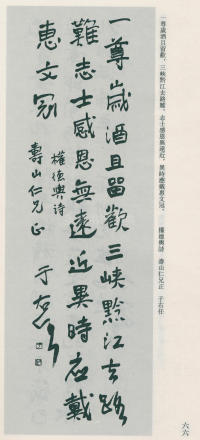 一尊歲酒且留歡，三峽黔江去路難。志士感恩無遠近，異時應戴惠文冠。 權德輿詩 壽山仁兄正 于右任
一尊歲酒且留歡三峽黔江去路
難志士感恩無遠近異時應戴
惠文冠
權德輿詩
壽山仁兄正
于右任
六六